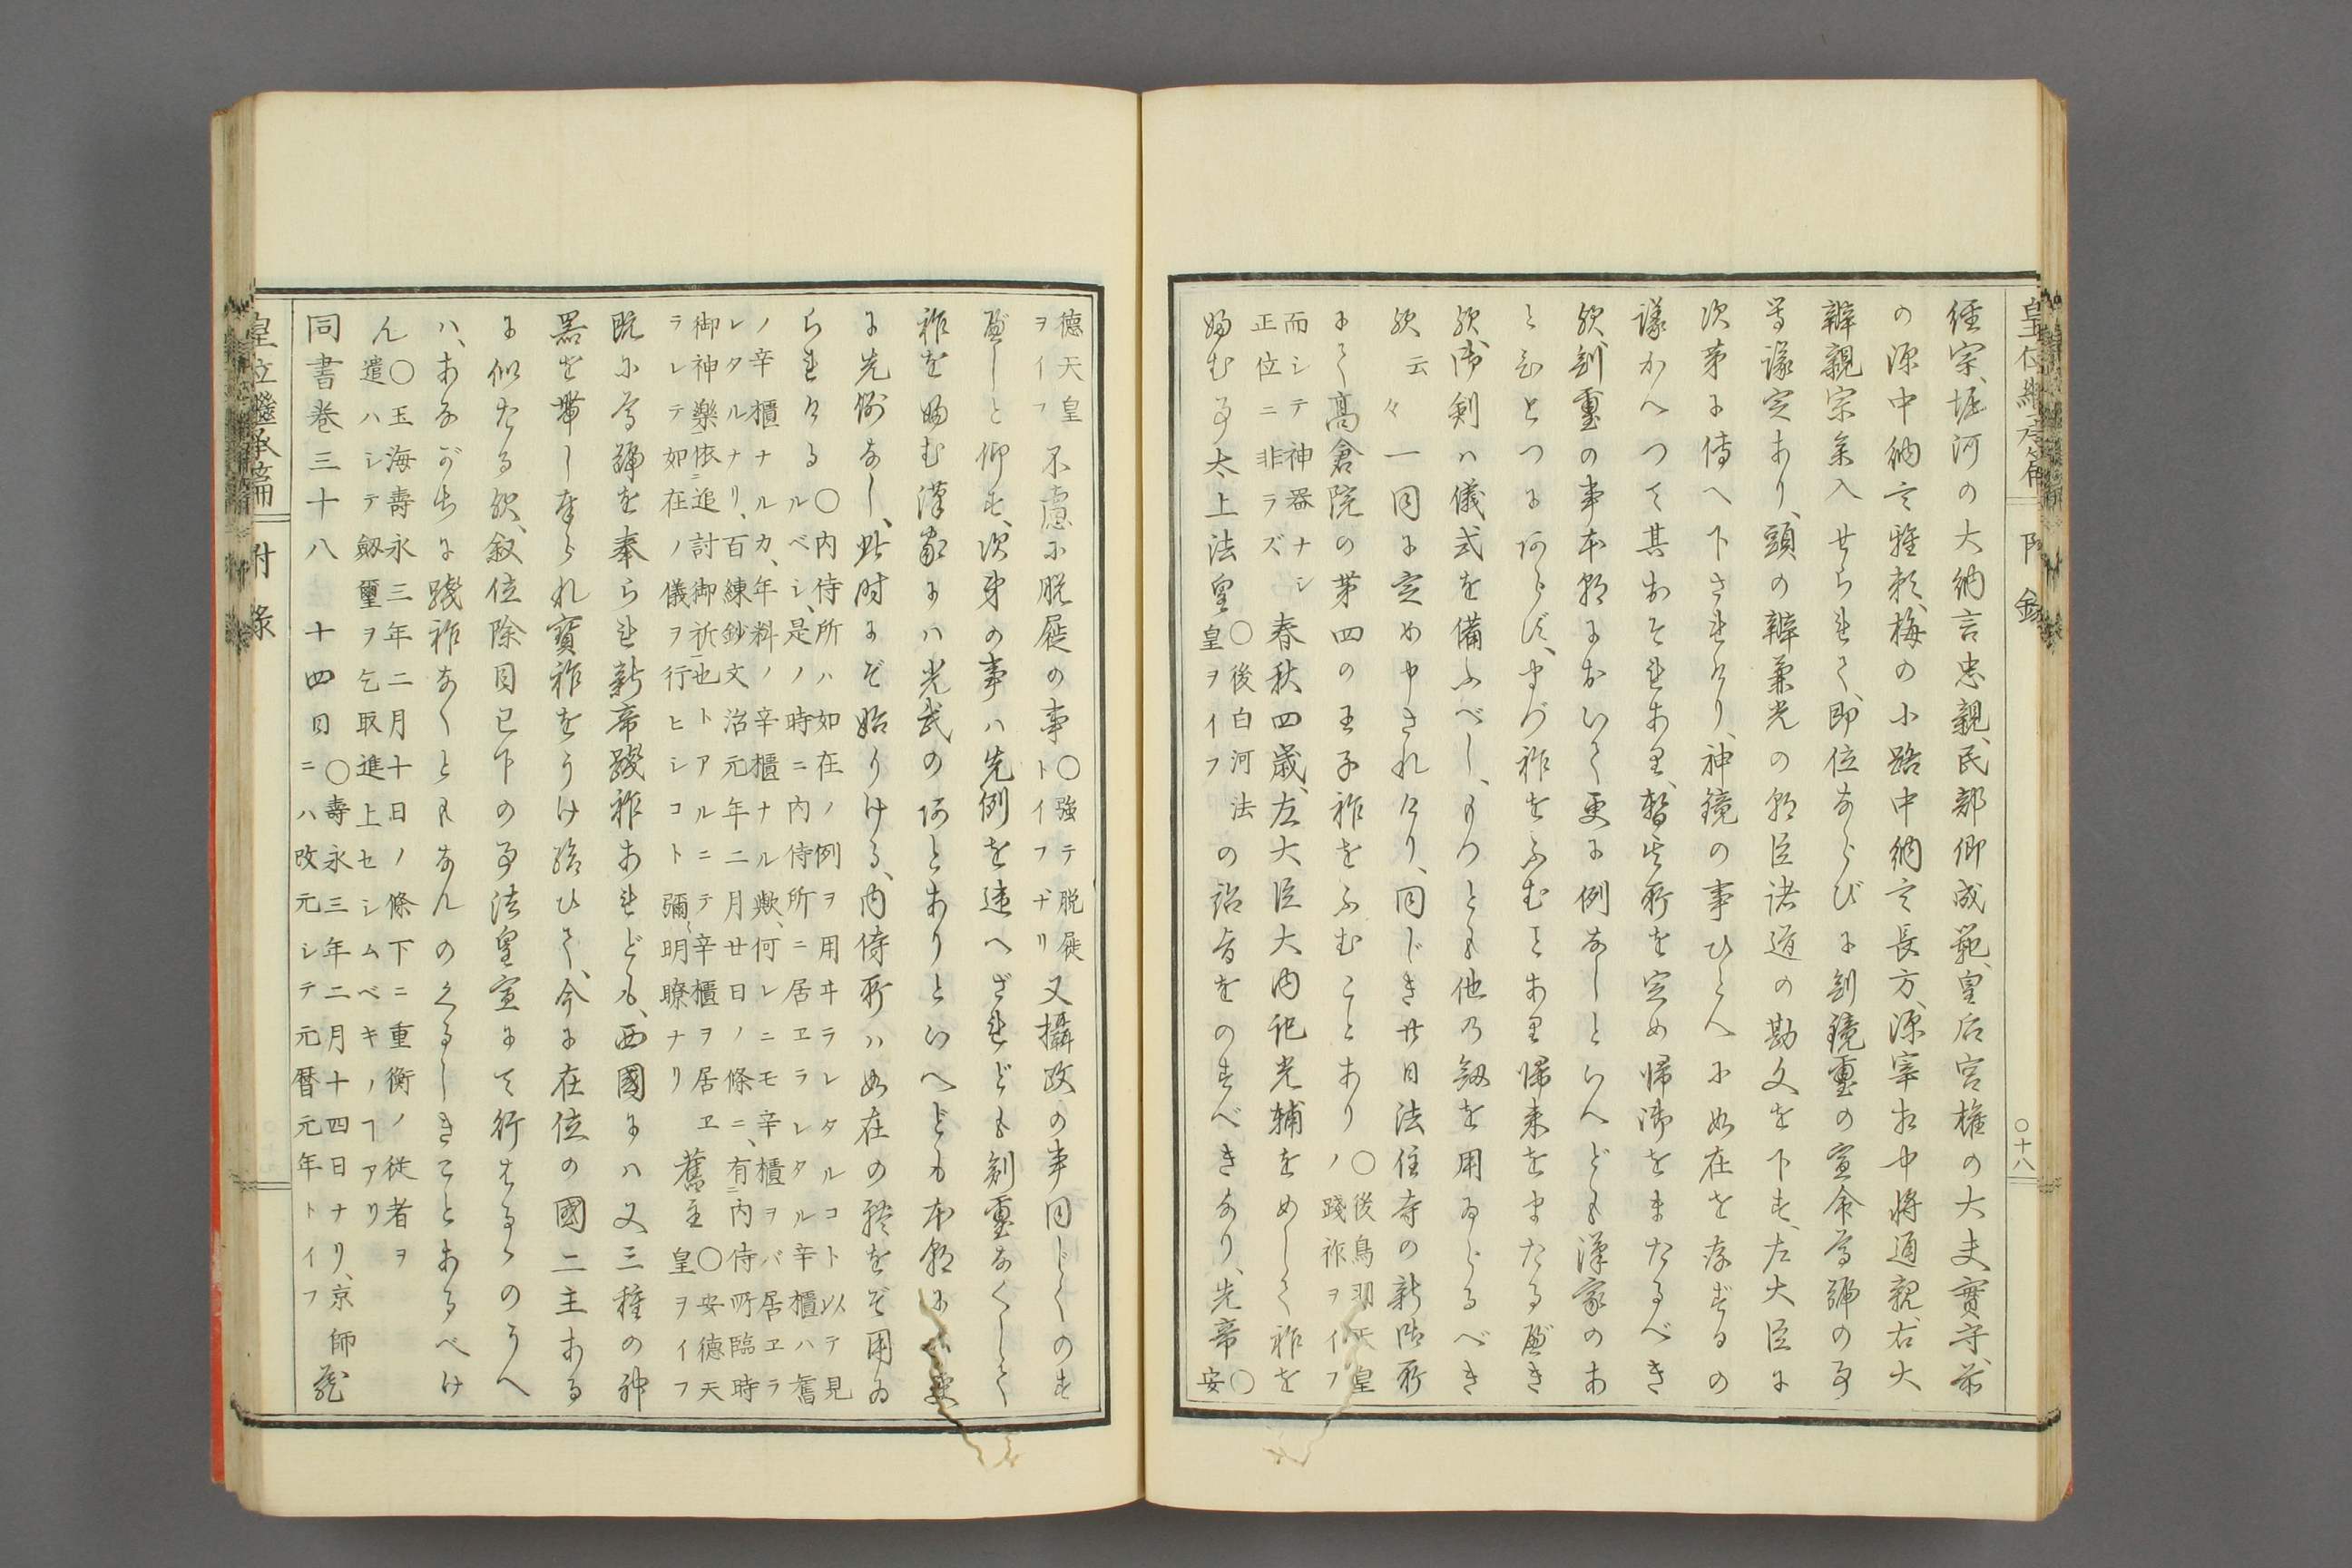 皇位繼承篇 附錄 〇十八
經宗、堀河の大納言忠親、民部卿成範、皇后宮權の大夫實守、前
の源中納言雅頼、梅の小路中納言長方、源宰相中將通親、右大
辨親宗參入せられて、即位ならびに劍鏡璽の宣命尊號の事
等議定あり、頭の辨兼光の朝臣諸道の勘文を下す、左大臣に
次第に傳へ下されけり、神鏡の事ひとへに如在を存ずるの
議かへつて其おそれあり、暫其所を定め歸御をまたるべき
歟、劍璽の事本朝においく更に例なしといへども漢家のあ
とひとつにあらず、まづ祚をふむとあり歸來をまたる
歟、御剣ハ儀式を備ふべし、もつとも他の劔を用ゐらるべき
歟云々一同に定め申されけり、同じき廿日法住寺の新御所
にて高倉院の第四の王子祚をふむことあり〇後鳥羽天皇ノ踐祚ヲイフ
而シテ神器ナシ正位ニ非ラズ春秋四歳、左大臣大内記光輔をめして祚を
踐む事太上法皇〇後白河法皇ヲイフの詔旨をのすべきなり、先帝〇安
德天皇ヲイフ不慮に脱屣の事〇強テ脱屣トイフナリ又攝政の事同じくのす
べしと仰す、次第の事ハ先例を違へざれども劍璽なくして
祚を踐む漢家にハ光武のあとありといへども本朝に更
に先例なし、此時にぞ始りける、内侍所ハ如在の禮をぞ用ゐ
られける〇内侍所ハ如在ノ例ヲ用ヰラレタルコト以テ見ルベシ、是ノ時ニ内侍所ニ居ヱラレタル辛櫃ハ舊
ノ辛櫃ナルカ、年料ノ辛櫃ナル歟、何レニモ辛櫃ヲバ居ヱラレタルナリ、百練鈔文治元年二月廿日ノ條ニ、有内侍所臨時
御神樂依追討御祈也トアルニテ辛櫃ヲ居ヱラレテ如在ノ儀ヲ行ヒシコト彌明瞭ナリ舊主〇安德天皇ヲイフ
既に尊號を奉られ新帝踐祚あれども、西國にハ又三種の神
器を帶し奉られ寶祚をうけ給ひて、今に在位の國二主ある
に似たる歟、叙位除目已下の事法皇宣にて行はるゝのうへ
ハ、あながちに踐祚なくともなんのくるしきことあるべけ
ん〇玉海壽永三年二月十日ノ條下ニ重衡ノ從者ヲ遣ハシテ劔璽ヲ乞取進上セシムベキノヿアリ
同書卷三十八 十四日〇壽永三年二月十四日ナリ、京師ニハ改元シテ元暦元年トイフ
皇位繼承篇 附錄